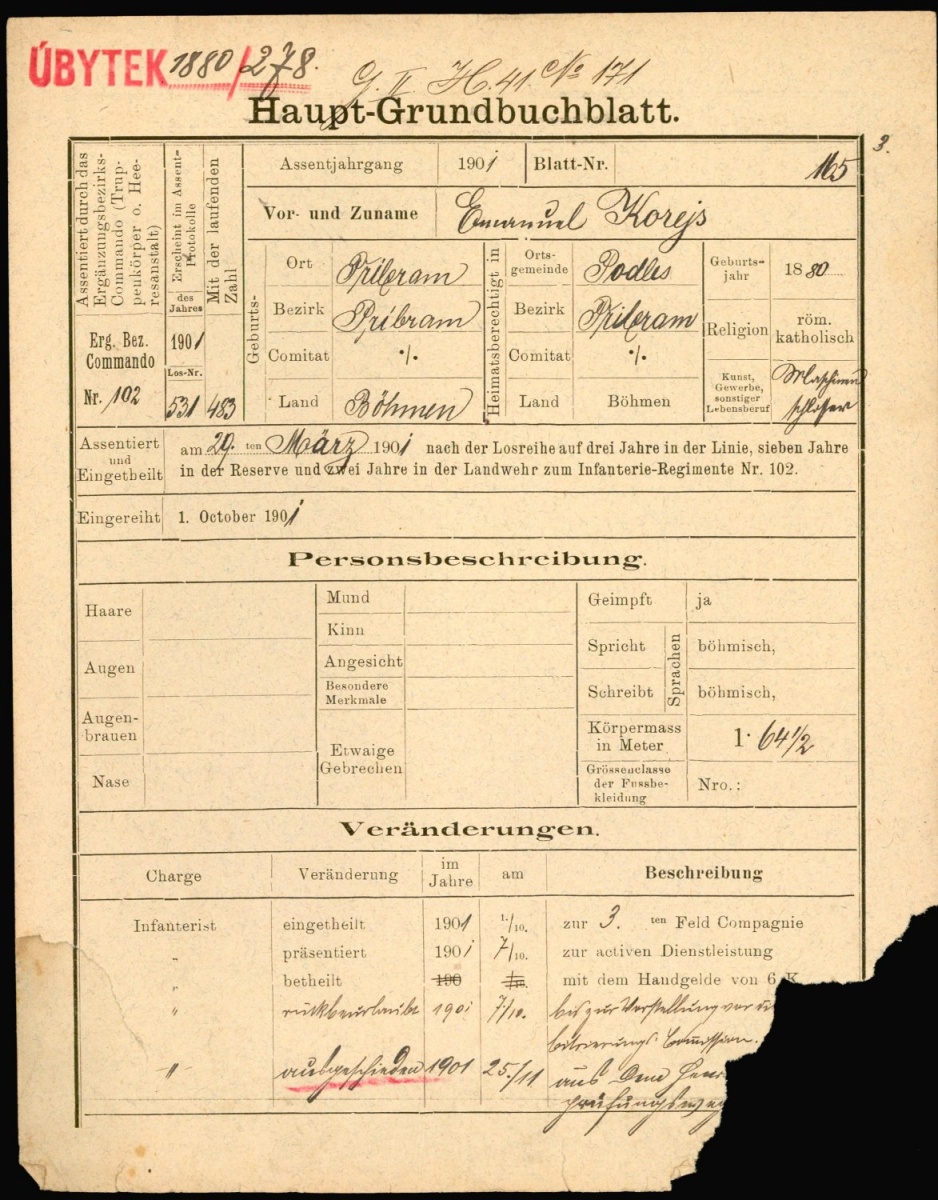 ÚBYTEK 1880/278.
G. II H. 41 No 171
Haupt-Grundbuchblatt.
3.
Assentiert durch das Ergänzungsbezirks-Commando (Truppenkörper o. Heeresanstalt)
Erscheint im Assent-Protokolle
des Jahres
Mit der laufenden Zahl
Assentjahrgang 1901 Blatt-Nr. 165
Vor- und Zuname Emanuel Korejs
Erg. Bez. Commando
Nr. 102
1901
Los-Nr.
531 483
Geburts-
Ort Přibram
Bezirk Přibram
Comitat ·/.
Land Böhmen
Heimatsberechtigt in
Ortsgemeinde Podles
Bezirk Přibram
Comitat ·/.
Land Böhmen
Geburtsjahr 1880
Religion röm. katholisch
Kunst, Gewerbe, sonstiger Lebensberuf Maschinenschlosser
Assentiert und Eingetheilt
am 29. ten März 1901 nach der Losreihe auf drei Jahre in der Linie, sieben Jahre
in der Reserve und zwei Jahre in der Landwehr zum Infanterie-Regimente Nr. 102.
Eingereiht 1. October 1901
Personsbeschreibung.
Haare
Augen
Augenbrauen
Nase
Mund
Kinn
Angesicht
Besondere Merkmale
Etwaige Gebrechen
Geimpft ja
Spricht böhmisch,
Sprachen
Schreibt böhmisch,
Körpermass in Meter 1· 64 1/2
Grössenclasse der Fussbekleidung Nro.:
Veränderungen.
Charge Veränderung im Jahre am Beschreibung
Infanterist eingetheilt 1901 1./10. zur 3. ten Feld Compagnie
" präsentiert 1901 7/10. zur activen Dienstleistung
" betheilt 190 mit dem Handgelde von 6 K
" rückbeurlaubt 1901 7/10. bis zur Vorstellung vor
Commission.
" ausgeschieden 1901 25./11 aus dem